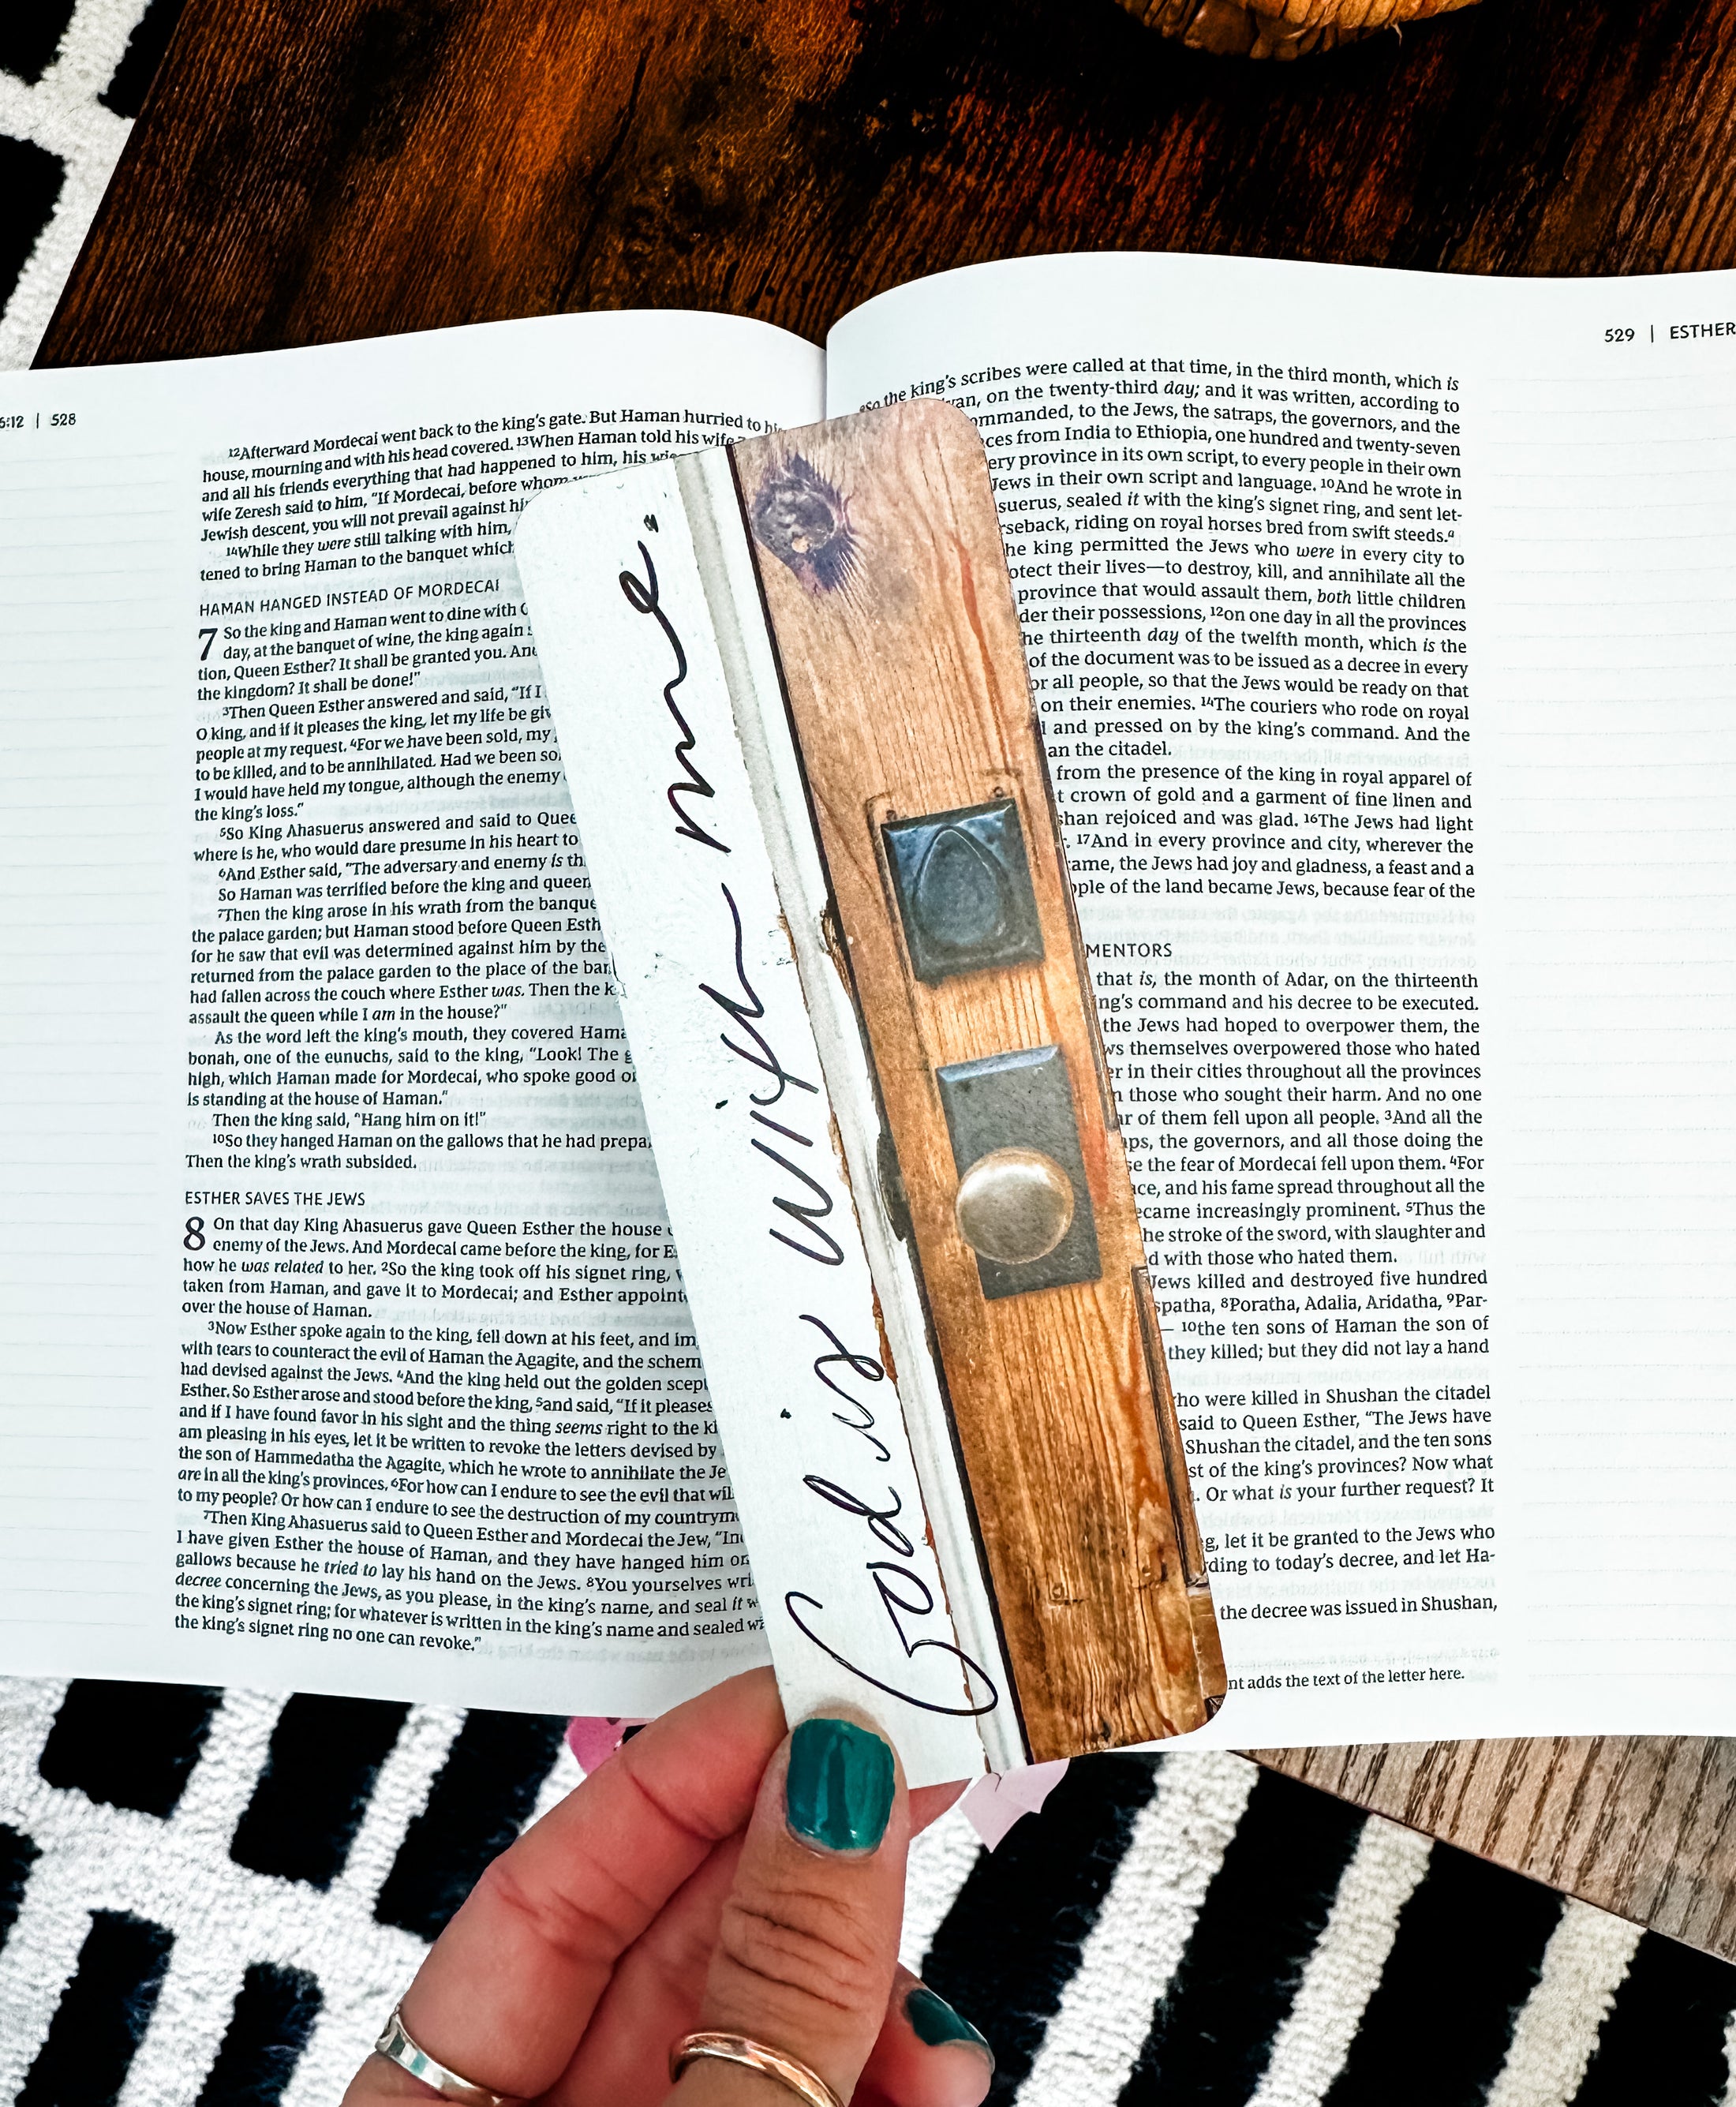 5:12 | 528
¹²Afterward Mordecai went back to the king's gate. But Haman hurried to his
house, mourning and with his head covered. ¹³When Haman told his wife
and all his friends everything that had happened to him, his
wife Zeresh said to him, "If Mordecai, before whom
Jewish descent, you will not prevail against
¹⁴While they were still talking with him,
tened to bring Haman to the banquet which
HAMAN HANGED INSTEAD OF MORDECAI
7 So the king and Haman went to dine with
day, at the banquet of wine, the king again
tion, Queen Esther? It shall be granted you. And
the kingdom? It shall be done!"
³Then Queen Esther answered and said, "If I
O king, and if it pleases the king, let my life be
people at my request. ⁴For we have been sold, my
to be killed, and to be annihilated. Had we been
I would have held my tongue, although the enemy
the king's loss."
⁵So King Ahasuerus answered and said to
where is he, who would dare presume in his heart to
⁶And Esther said, "The adversary and enemy is
So Haman was terrified before the king and queen
⁷Then the king arose in his wrath from the
the palace garden; but Haman stood before Queen
for he saw that evil was determined against him by the
returned from the palace garden to the place of the
had fallen across the couch where Esther was. Then the
assault the queen while I am in the house?"
As the word left the king's mouth, they covered
bonah, one of the eunuchs, said to the king, "Look! The
high, which Haman made for Mordecai, who spoke good
is standing at the house of Haman."
Then the king said, "Hang him on it!"
¹⁰So they hanged Haman on the gallows that he had
Then the king's wrath subsided.
ESTHER SAVES THE JEWS
8 On that day King Ahasuerus gave Queen Esther the house
enemy of the Jews. And Mordecai came before the king, for
how he was related to her. ²So the king took off his signet ring,
taken from Haman, and gave it to Mordecai; and Esther
over the house of Haman.
³Now Esther spoke again to the king, fell down at his feet, and
with tears to counteract the evil of Haman the Agagite, and the
had devised against the Jews. ⁴And the king held out the golden
Esther. So Esther arose and stood before the king, ⁵and said, "If it pleases
and if I have found favor in his sight and the thing seems right to the
am pleasing in his eyes, let it be written to revoke the letters devised by
the son of Hammedatha the Agagite, which he wrote to annihilate the
are in all the king's provinces. ⁶For how can I endure to see the evil that
to my people? Or how can I endure to see the destruction of my
⁷Then King Ahasuerus said to Queen Esther and Mordecai the Jew,
I have given Esther the house of Haman, and they have hanged him
gallows because he tried to lay his hand on the Jews. ⁸You yourselves
decree concerning the Jews, as you please, in the king's name, and seal it
the king's signet ring; for whatever is written in the king's name and sealed
the king's signet ring no one can revoke."
God is with me.
529 | ESTHER
⁹So the king's scribes were called at that time, in the third month, which is
on the twenty-third day; and it was written, according to
to the Jews, the satraps, the governors, and the
from India to Ethiopia, one hundred and twenty-seven
province in its own script, to every people in their own
Jews in their own script and language. ¹⁰And he wrote in
sealed it with the king's signet ring, and sent let-
riding on royal horses bred from swift steeds.ᵃ
king permitted the Jews who were in every city to
their lives—to destroy, kill, and annihilate all the
province that would assault them, both little children
their possessions, ¹²on one day in all the provinces
thirteenth day of the twelfth month, which is the
of the document was to be issued as a decree in every
all people, so that the Jews would be ready on that
on their enemies. ¹⁴The couriers who rode on royal
and pressed on by the king's command. And the
the citadel.
from the presence of the king in royal apparel of
crown of gold and a garment of fine linen and
rejoiced and was glad. ¹⁶The Jews had light
¹⁷And in every province and city, wherever the
the Jews had joy and gladness, a feast and a
of the land became Jews, because fear of the
MENTORS
that is, the month of Adar, on the thirteenth
command and his decree to be executed.
the Jews had hoped to overpower them, the
themselves overpowered those who hated
in their cities throughout all the provinces
those who sought their harm. And no one
of them fell upon all people. ³And all the
the governors, and all those doing the
the fear of Mordecai fell upon them. ⁴For
and his fame spread throughout all the
became increasingly prominent. ⁵Thus the
the stroke of the sword, with slaughter and
with those who hated them.
Jews killed and destroyed five hundred
⁸Poratha, Adalia, Aridatha, ⁹Par-
— ¹⁰the ten sons of Haman the son of
they killed; but they did not lay a hand
who were killed in Shushan the citadel
said to Queen Esther, "The Jews have
Shushan the citadel, and the ten sons
of the king's provinces? Now what
Or what is your further request? It
let it be granted to the Jews who
to today's decree, and let Ha-
the decree was issued in Shushan,
adds the text of the letter here.